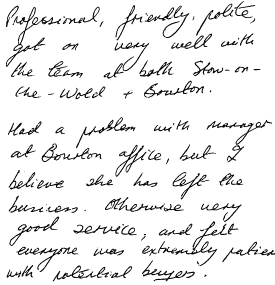 Professional, friendly, polite,
got on very well with
the team at both Stow-on-
the-Wold + Bourton.
Had a problem with manager
at Bourton office, but I
believe she has left the
business. Otherwise very
good service, and felt
everyone was extremely patien
with potential buyers.